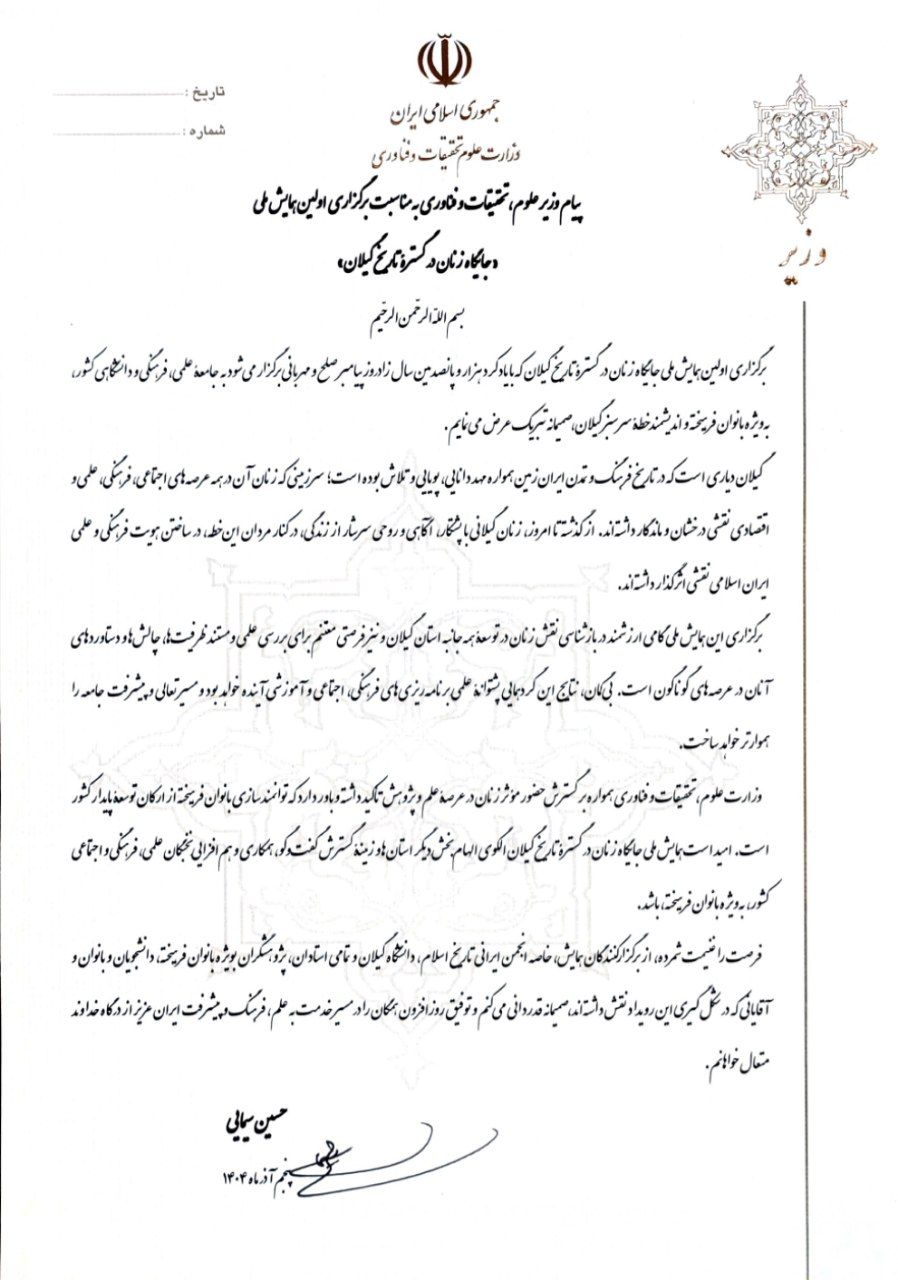 جمهوری اسلامی ایران
وزارت علوم تحقیقات و فناوری
تاریخ :
شماره :
وزیر
پیام وزیر علوم، تحقیقات و فناوری به مناسبت برگزاری اولین همایش ملی
«جایگاه زنان در گسترهٔ تاریخ گیلان»
بسم اللّه الرحّمن الرحیّم
برگزاری اولین همایش ملی جایگاه زنان در گسترهٔ تاریخ گیلان که با یادکرد هزار و پانصدمین سال زادروز پیامبر صلح و مهربانی برگزار می‌شود به جامعهٔ علمی، فرهنگی و دانشگاهی کشور،
به ویژه بانوان فرهیخته و اندیشمند خطهٔ سرسبز گیلان، صمیمانه تبریک عرض می‌نمایم.
گیلان دیاری است که در تاریخ فرهنگ و تمدن ایران زمین همواره مهد دانایی، پویایی و تلاش بوده است؛ سرزمینی که زنان آن در همه عرصه‌های اجتماعی، فرهنگی، علمی و
اقتصادی نقشی درخشان و ماندگار داشته‌اند. از گذشته تا امروز، زنان گیلانی با پشتکار، آگاهی و روحی سرشار از زندگی، در کنار مردان این خطه، در ساختن هویت فرهنگی و علمی
ایران اسلامی نقشی اثرگذار داشته‌اند.
برگزاری این همایش ملی گامی ارزشمند در بازشناسی نقش زنان در توسعهٔ همه جانبه استان گیلان و نیز فرصتی مغتنم برای بررسی علمی و مستند ظرفیت‌ها، چالش‌ها و دستاوردهای
آنان در عرصه‌های گوناگون است. بی‌گمان، نتایج این گردهمایی پشتوانهٔ علمی برنامه‌ریزی‌های فرهنگی، اجتماعی و آموزشی آینده خواهد بود و مسیر تعالی و پیشرفت جامعه را
هموارتر خواهد ساخت.
وزارت علوم، تحقیقات و فناوری همواره بر گسترش حضور مؤثر زنان در عرصهٔ علم و پژوهش تاکید داشته و باور دارد که توانمندسازی بانوان فرهیخته از ارکان توسعهٔ پایدار کشور
است. امید است همایش ملی جایگاه زنان در گسترهٔ تاریخ گیلان الگوی الهام‌بخش دیگر استان‌ها و زمینهٔ گسترش گفت‌وگو، همکاری و هم‌افزایی نخبگان علمی، فرهنگی و اجتماعی
کشور، به ویژه بانوان فرهیخته، باشد.
فرصت را غنیمت شمرده، از برگزارکنندگان همایش، خاصه انجمن ایرانی تاریخ اسلام، دانشگاه گیلان و تمامی استادان، پژوهشگران بویژه بانوان فرهیخته، دانشجویان و بانوان و
آقایانی که در شکل‌گیری این رویداد نقش داشته‌اند، صمیمانه قدردانی می‌کنم و توفیق روزافزون همگان را در مسیر خدمت به علم، فرهنگ و پیشرفت ایران عزیز از درگاه خداوند
متعال خواهانم.
حسین سیمایی
پنجم آذر ماه ۱۴۰۴